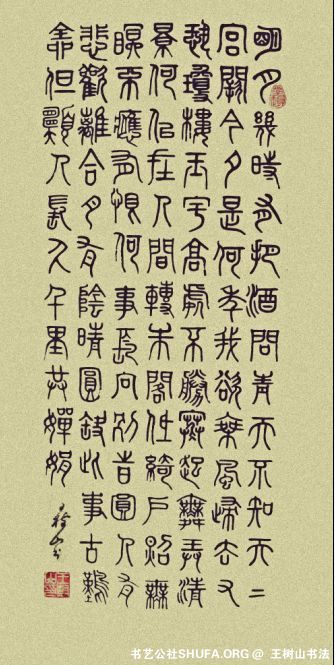 明月幾時有把酒問青天不知天上
宮闕今夕是何年我欲乘風歸去又
恐瓊樓玉宇高處不勝寒起舞弄清
景何佀在人間轉朱閣低綺戶照無
瞑不應有恨何事長向別旹圓人有
悲歡離合月有陰晴圓缺此事古難
全但願人長久千里共嬋娟
书艺公社SHUFA.ORG @ 王树山书法